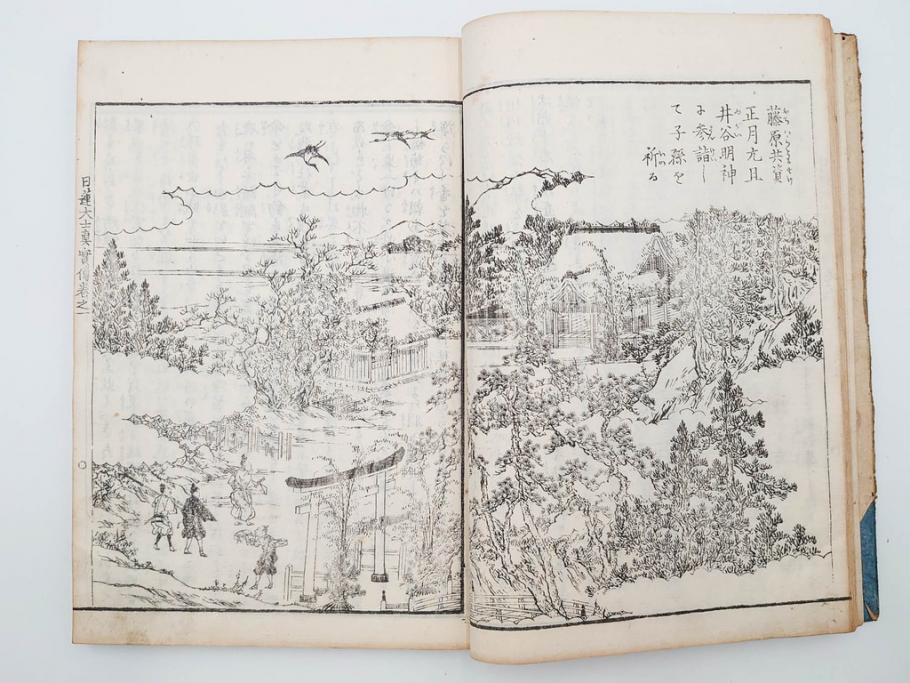 藤原共資
正月元旦
井谷明神
に参詣し
て子孫を
祈る
日蓮大士真實傳巻之一